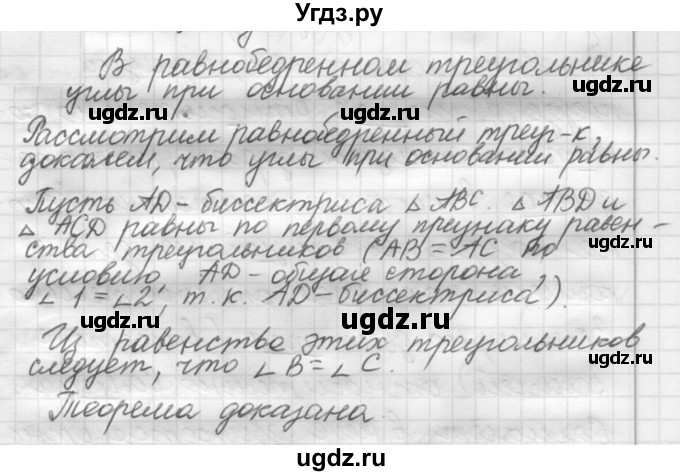 Угдз.ру
В равнобедренном треугольнике
углы при основании равны.
ugdz.ru ugdz.ru
Рассмотрим равнобедренный треуг-к,
докажем, что углы при основании равны.
ugdz.ru
Пусть AD - биссектриса △ ABC. △ ABD и
ugdz.ru ugdz.ru
△ ACD равны по первому признаку равен-
ства треугольников (AB = AC по
ugdz.ru
условию, AD - общая сторона,
∠1 = ∠2, т.к. AD - биссектриса).
ugdz.ru ugdz.ru
Из равенства этих треугольников
ugdz.ru
следует, что ∠ B = ∠ C.
ugdz.ru ugdz.ru
Теорема доказана.
ugdz.ru